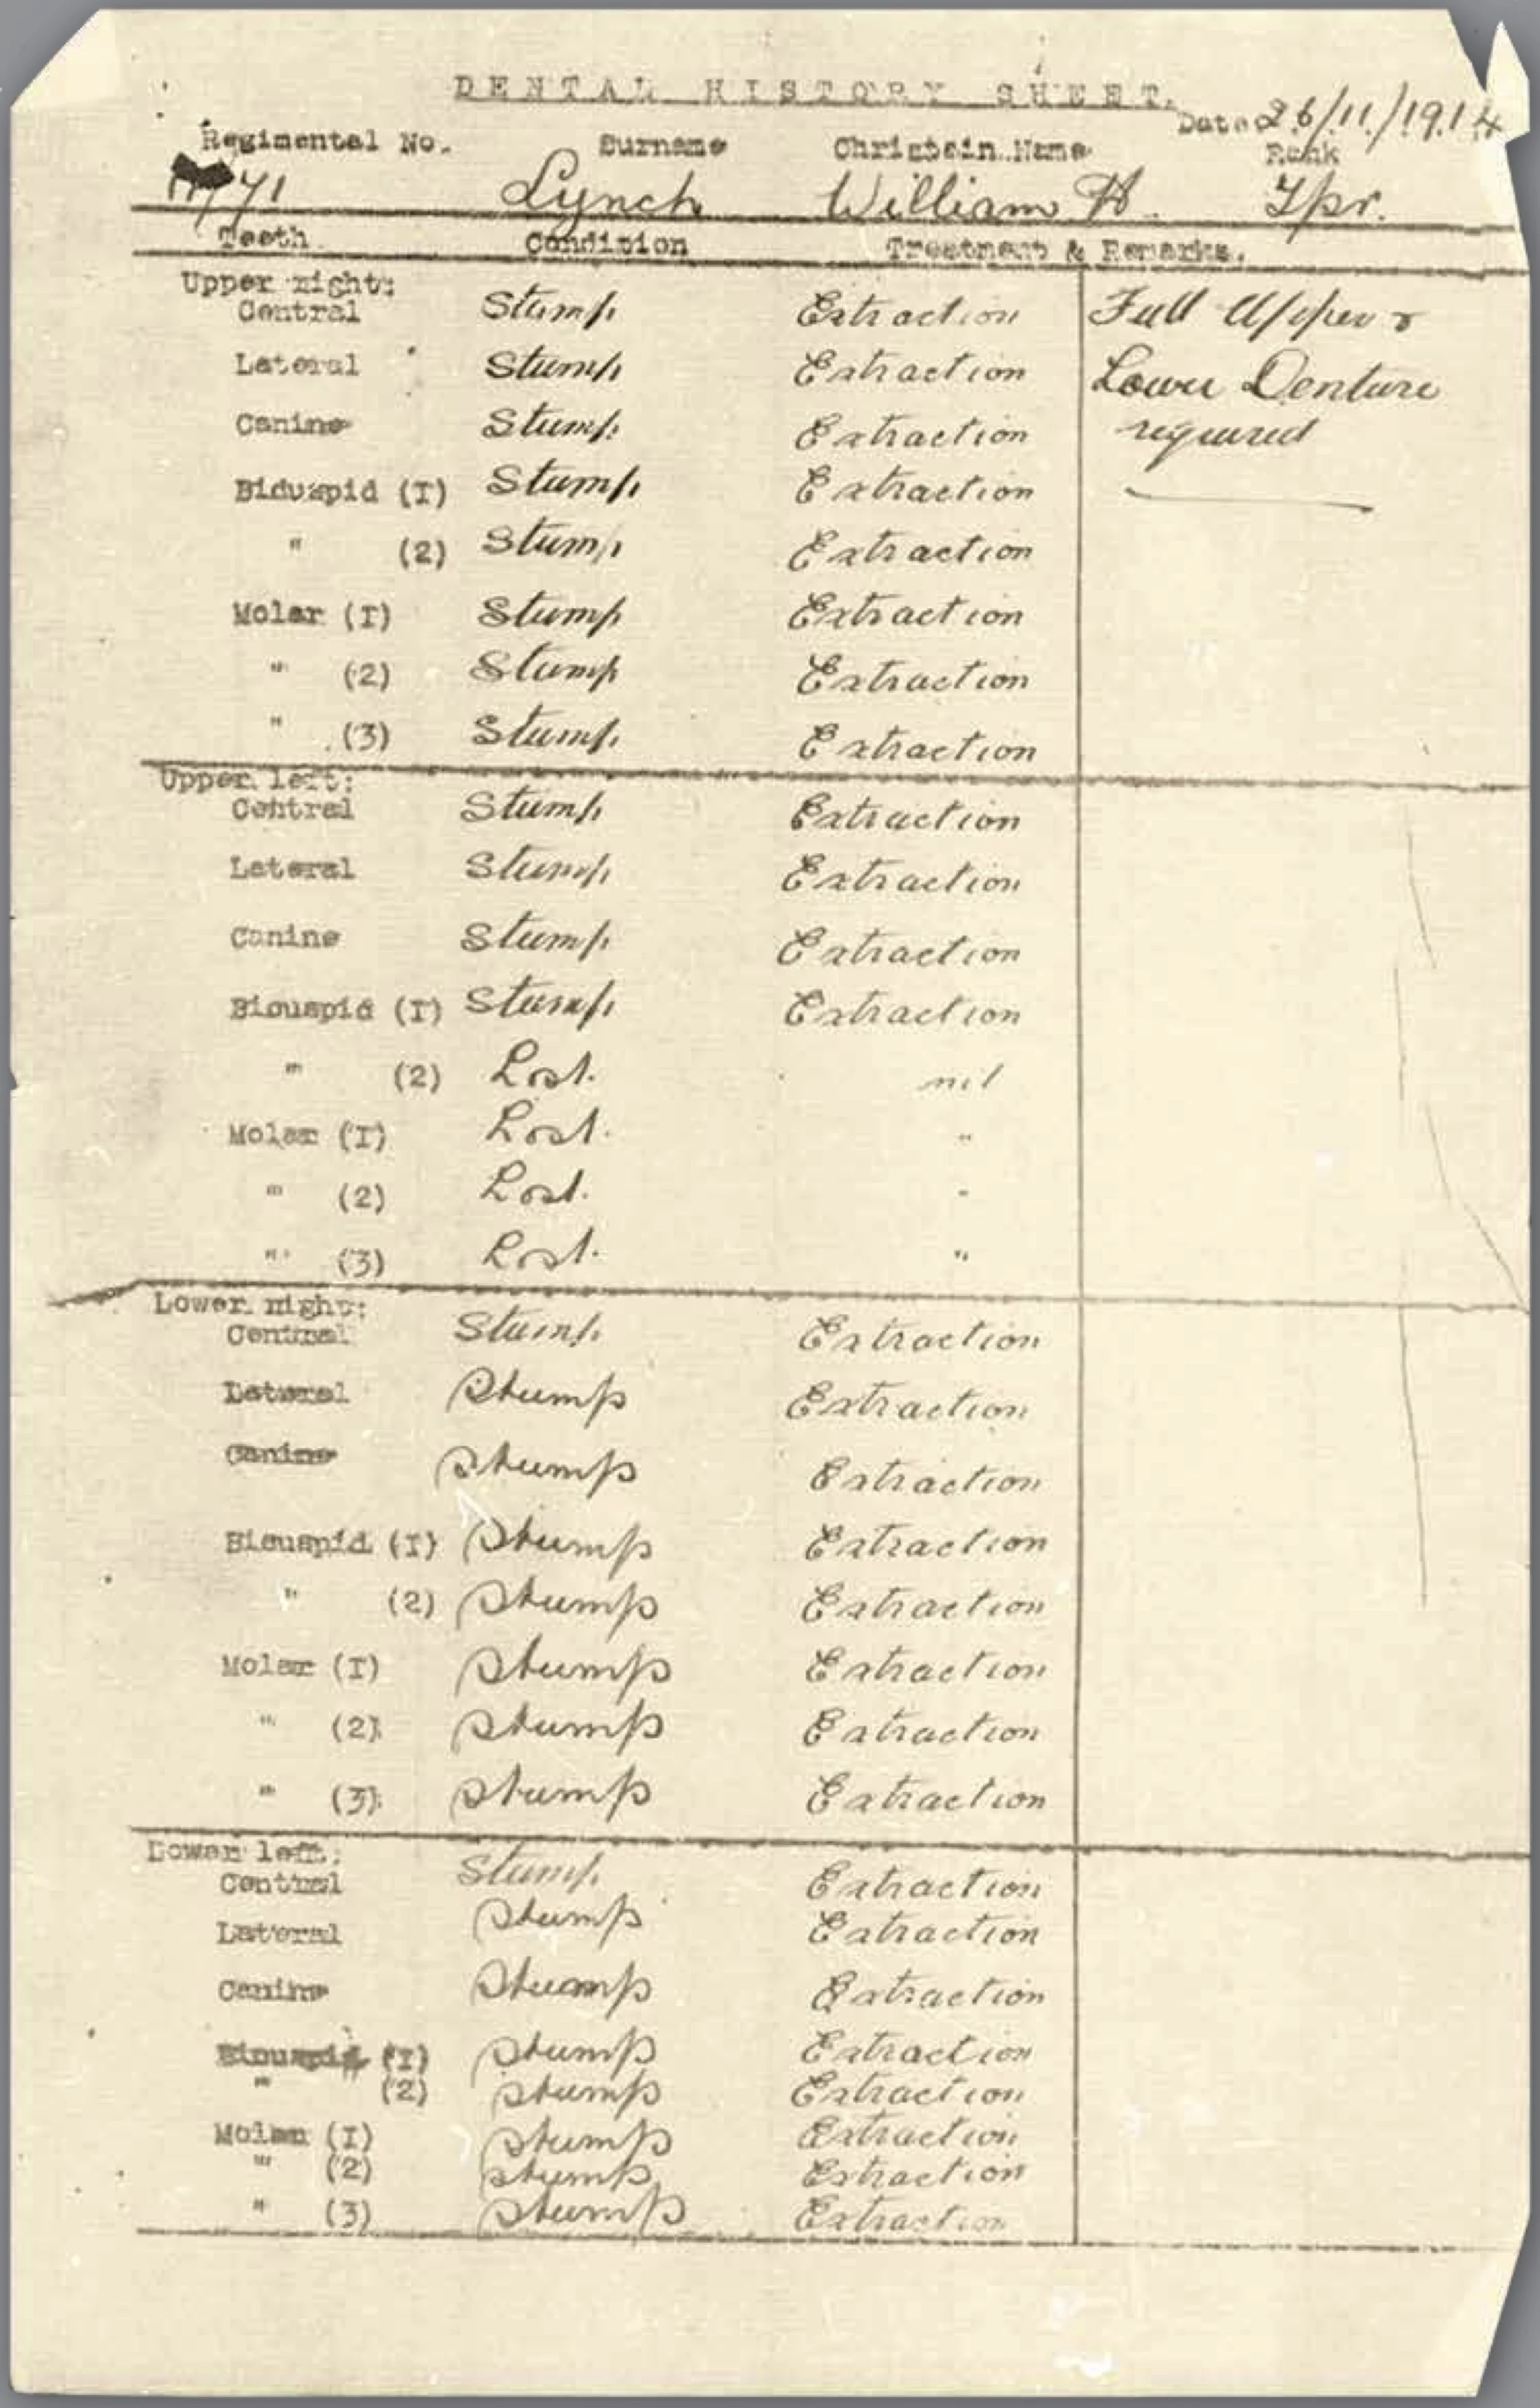 DENTAL HISTORY SHEET.
Date 26/11/1914
Regimental No. Surname Christain Name Rank
Lynch William H. Tpr.
Teeth Condition Treatment & Remarks.
Upper right:
Central Stump Extraction Full Upper &
Lateral Stump Extraction Lower Denture
Canine Stump Extraction required
Biduspid (I) Stump Extraction
" (2) Stump Extraction
Molar (I) Stump Extraction
" (2) Stump Extraction
" (3) Stump Extraction
Upper left:
Central Stump Extraction
Lateral Stump Extraction
Canine Stump Extraction
Bicuspid (I) Stump Extraction
" (2) Lost. nil
Molar (I) Lost. "
" (2) Lost. "
" (3) Lost. "
Lower right:
Central Stump Extraction
Lateral Stump Extraction
Canine Stump Extraction
Bicuspid (I) Stump Extraction
" (2) Stump Extraction
Molar (I) Stump Extraction
" (2) Stump Extraction
" (3) Stump Extraction
Lower left:
Central Stump Extraction
Lateral Stump Extraction
Canine Stump Extraction
Bicuspid (I) Stump Extraction
" (2) Stump Extraction
Molar (I) Stump Extraction
" (2) Stump Extraction
" (3) Stump Extraction